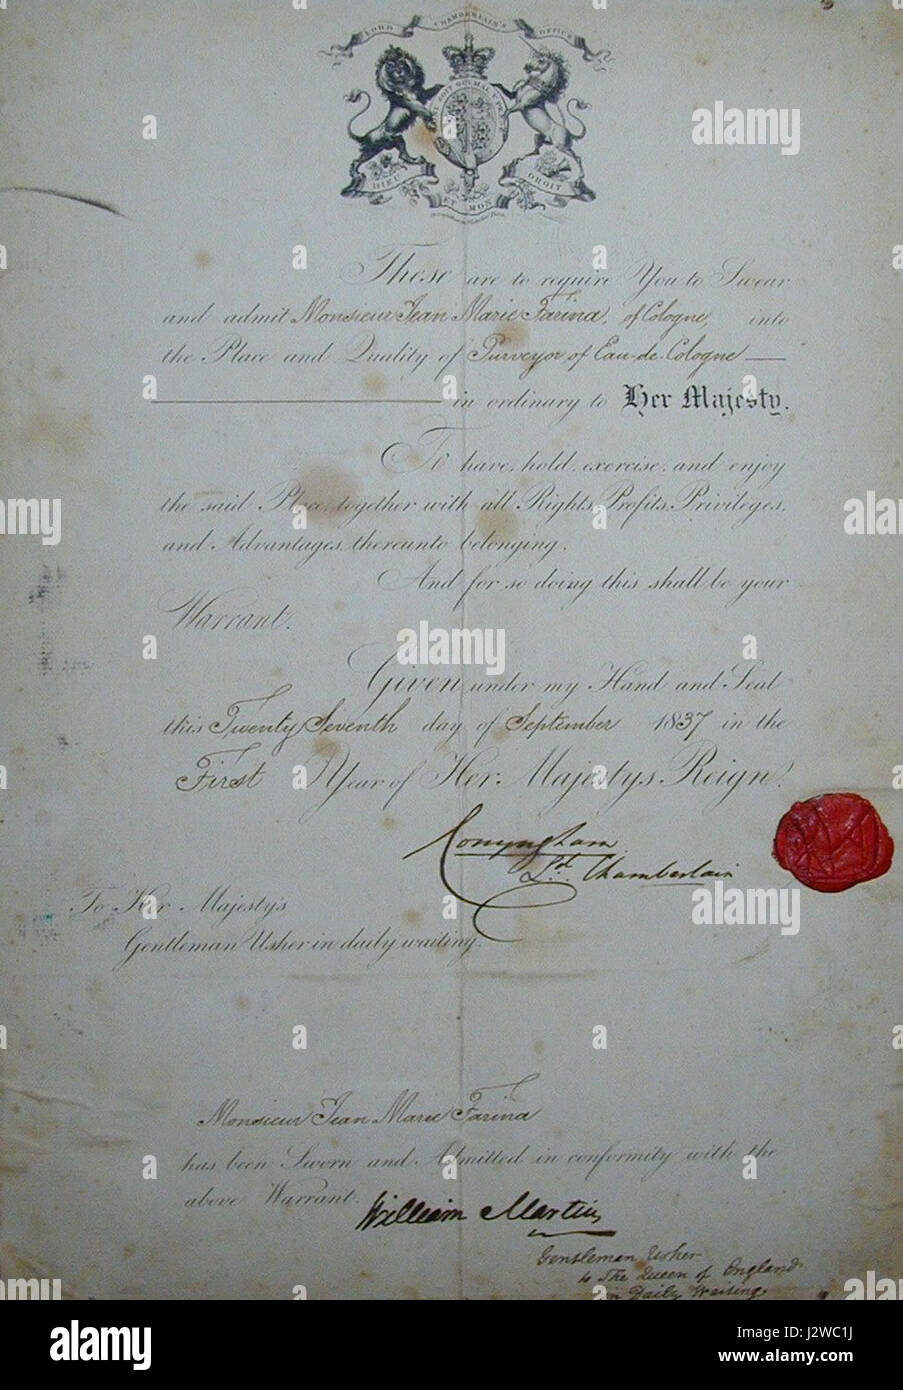 LORD CHAMBERLAIN'S OFFICE
HONI SOIT QUI MAL Y PENSE
DIEU ET MON DROIT
These are to require You to Swear
and admit Monsieur Jean Marie Farina, of Cologne, into
the Place and Quality of Purveyor of Eau-de-Cologne
in ordinary to Her Majesty.
To have, hold, exercise, and enjoy
the said Place, together with all Rights, Profits, Privileges,
and Advantages, thereunto belonging.
And for so doing this shall be your
Warrant.
Given under my Hand and Seal
this Twenty Seventh day of September 1837 in the
First Year of Her Majestys Reign.
Conyngham
Ld. Chamberlain
To Her Majesty's
Gentleman Usher in daily waiting.
Monsieur Jean Marie Farina
has been Sworn and Admitted in conformity with the
above Warrant.
William Martins
Gentleman Usher
to The Queen of England
in Daily Waiting
alamy
alamy
alamy
alamy
alamy
alamy
alamy
alamy
alamy
Image ID: J2WC1J
www.alamy.com